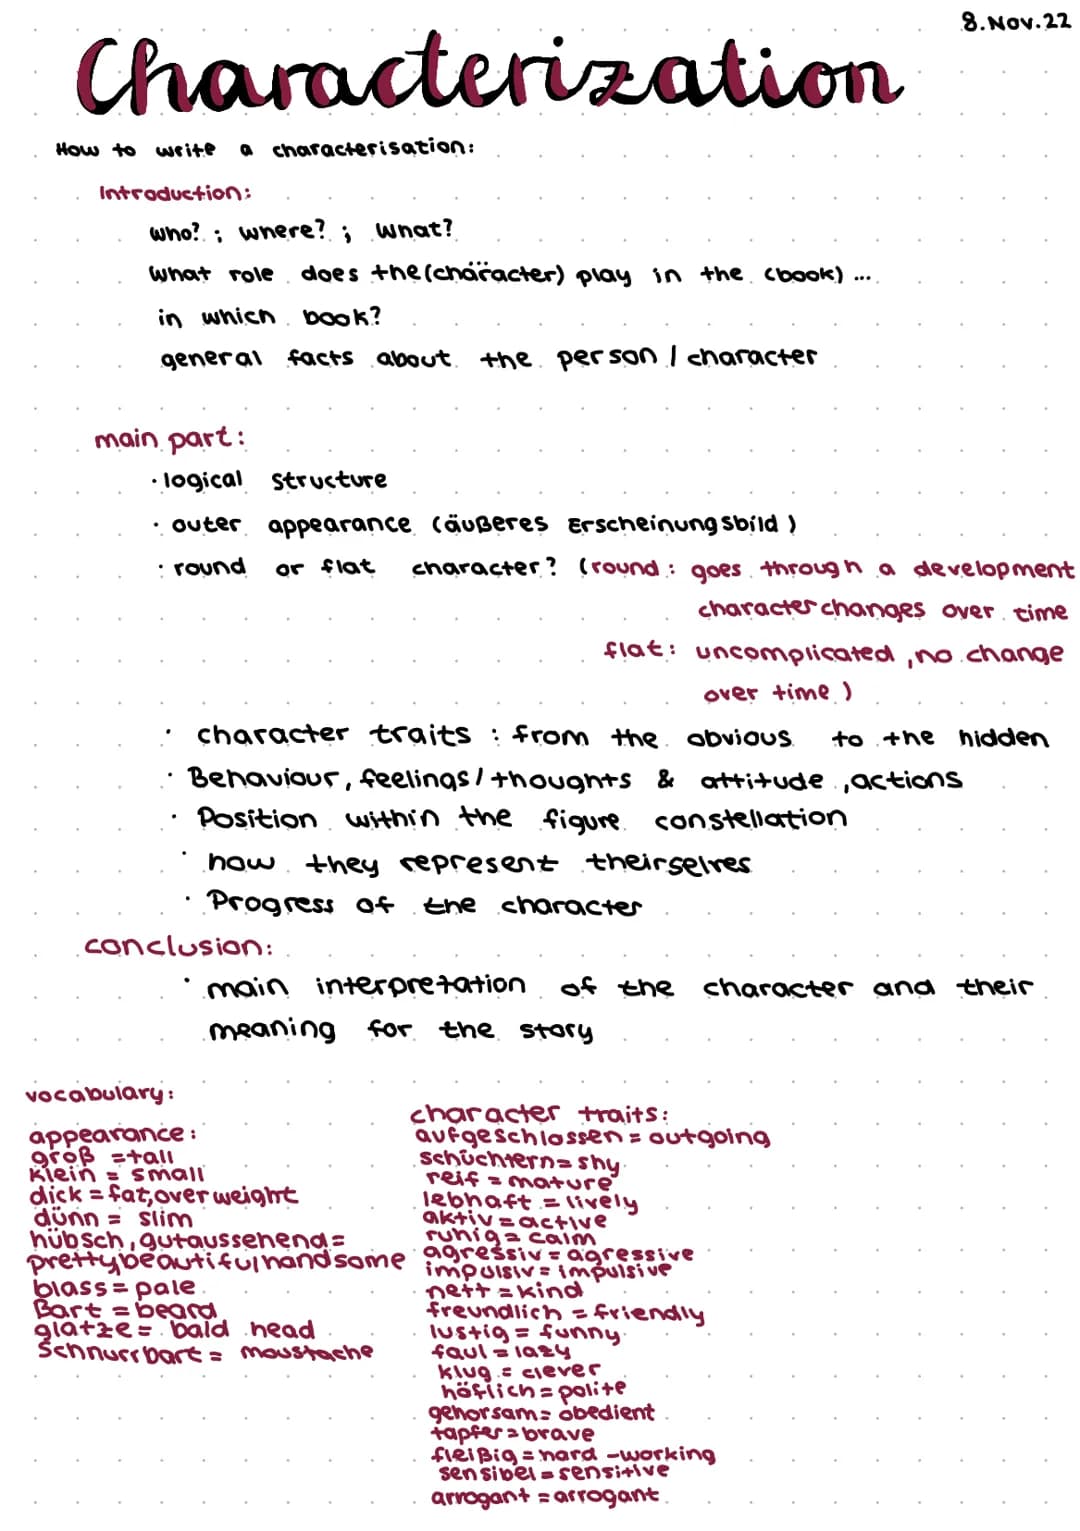 8.Nov.22
Characterization
How to write a characterisation:
Introduction:
who? ; where? ; what?
what role does the (character) play in the (book) ...
in which book?
general facts about the person / character
main part:
· logical structure
· outer appearance (äußeres Erscheinungsbild)
· round or flat character? (round: goes through a development
character changes over time
flat: uncomplicated, no change
over time)
· character traits : from the obvious to the hidden
· Behaviour, feelings / thoughts & attitude, actions
· Position within the figure constellation
· how they represent theirselves
· Progress of the character
conclusion:
· main interpretation of the character and their
meaning for the story
vocabulary:
appearance:
groß = tall
klein = small
dick = fat, overweight
dünn = slim
hübsch, gutaussehend =
pretty beautiful handsome
blass = pale
Bart = beard
glatze = bald head
Schnurrbart = moustache
character traits:
aufgeschlossen = outgoing
schüchtern = shy
reif = mature
lebhaft = lively
aktiv = active
ruhig = calm
agressiv = agressive
impulsiv = impulsive
nett = kind
freundlich = friendly
lustig = funny
faul = lazy
klug = clever
höflich = polite
gehorsam = obedient
tapfer = brave
fleißig = hard -working
sensibel = sensitive
arrogant = arrogant